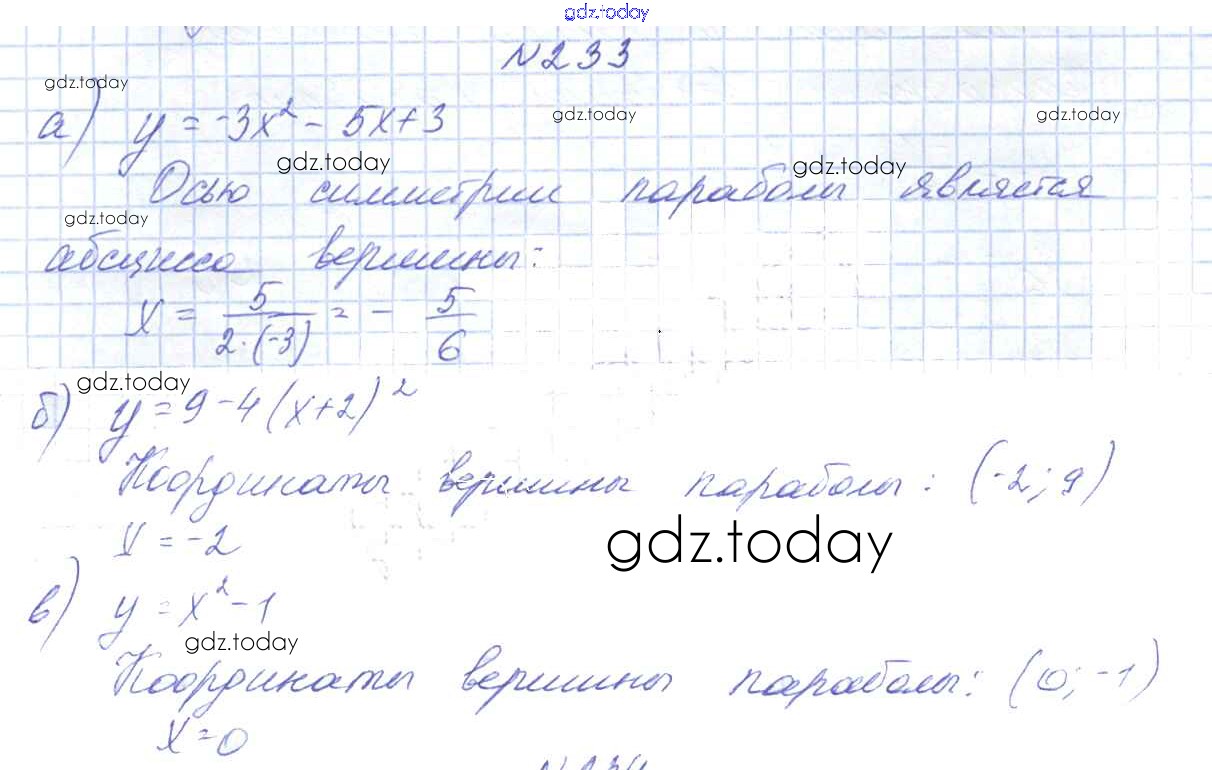 gdz.today
№233
gdz.today
а) y = -3x² - 5x+3
gdz.today
gdz.today
gdz.today
gdz.today
Осью симметрии параболы является
gdz.today
абсцисса вершины:
x = 5/(2·(-3)) = - 5/6
gdz.today
б) y = 9-4(x+2)²
Координаты вершины параболы: (-2; 9)
x = -2
gdz.today
в) y = x²-1
gdz.today
Координаты вершины параболы: (0; -1)
x = 0